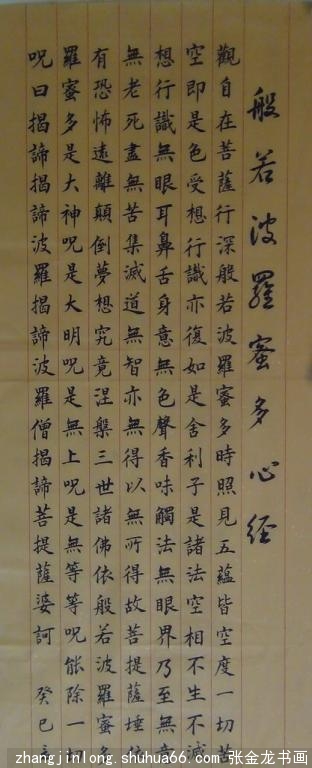 般若波羅蜜多心经
觀自在菩薩行深般若波羅蜜多時照見五蘊皆空度一切苦
空即是色受想行識亦復如是舍利子是諸法空相不生不滅
想行識無眼耳鼻舌身意無色聲香味觸法無眼界乃至無意
無老死盡無苦集滅道無智亦無得以無所得故菩提薩埵
有恐怖遠離顛倒夢想究竟涅槃三世諸佛依般若波羅蜜多
羅蜜多是大神呪是大明呪是無上呪是無等等呪能除一切
呪曰揭諦揭諦波羅揭諦波羅僧揭諦菩提薩婆訶 癸巳
zhangjinlong.shuhua66.com 张金龙书画